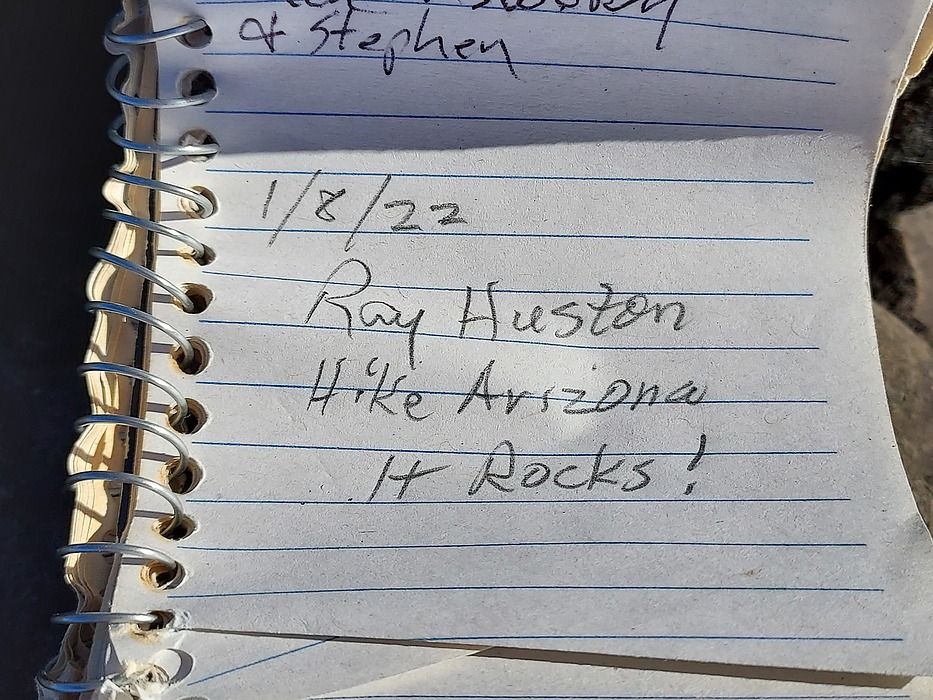 & Stephen
1/8/22
Ray Huston
Hike Arizona
It Rocks!